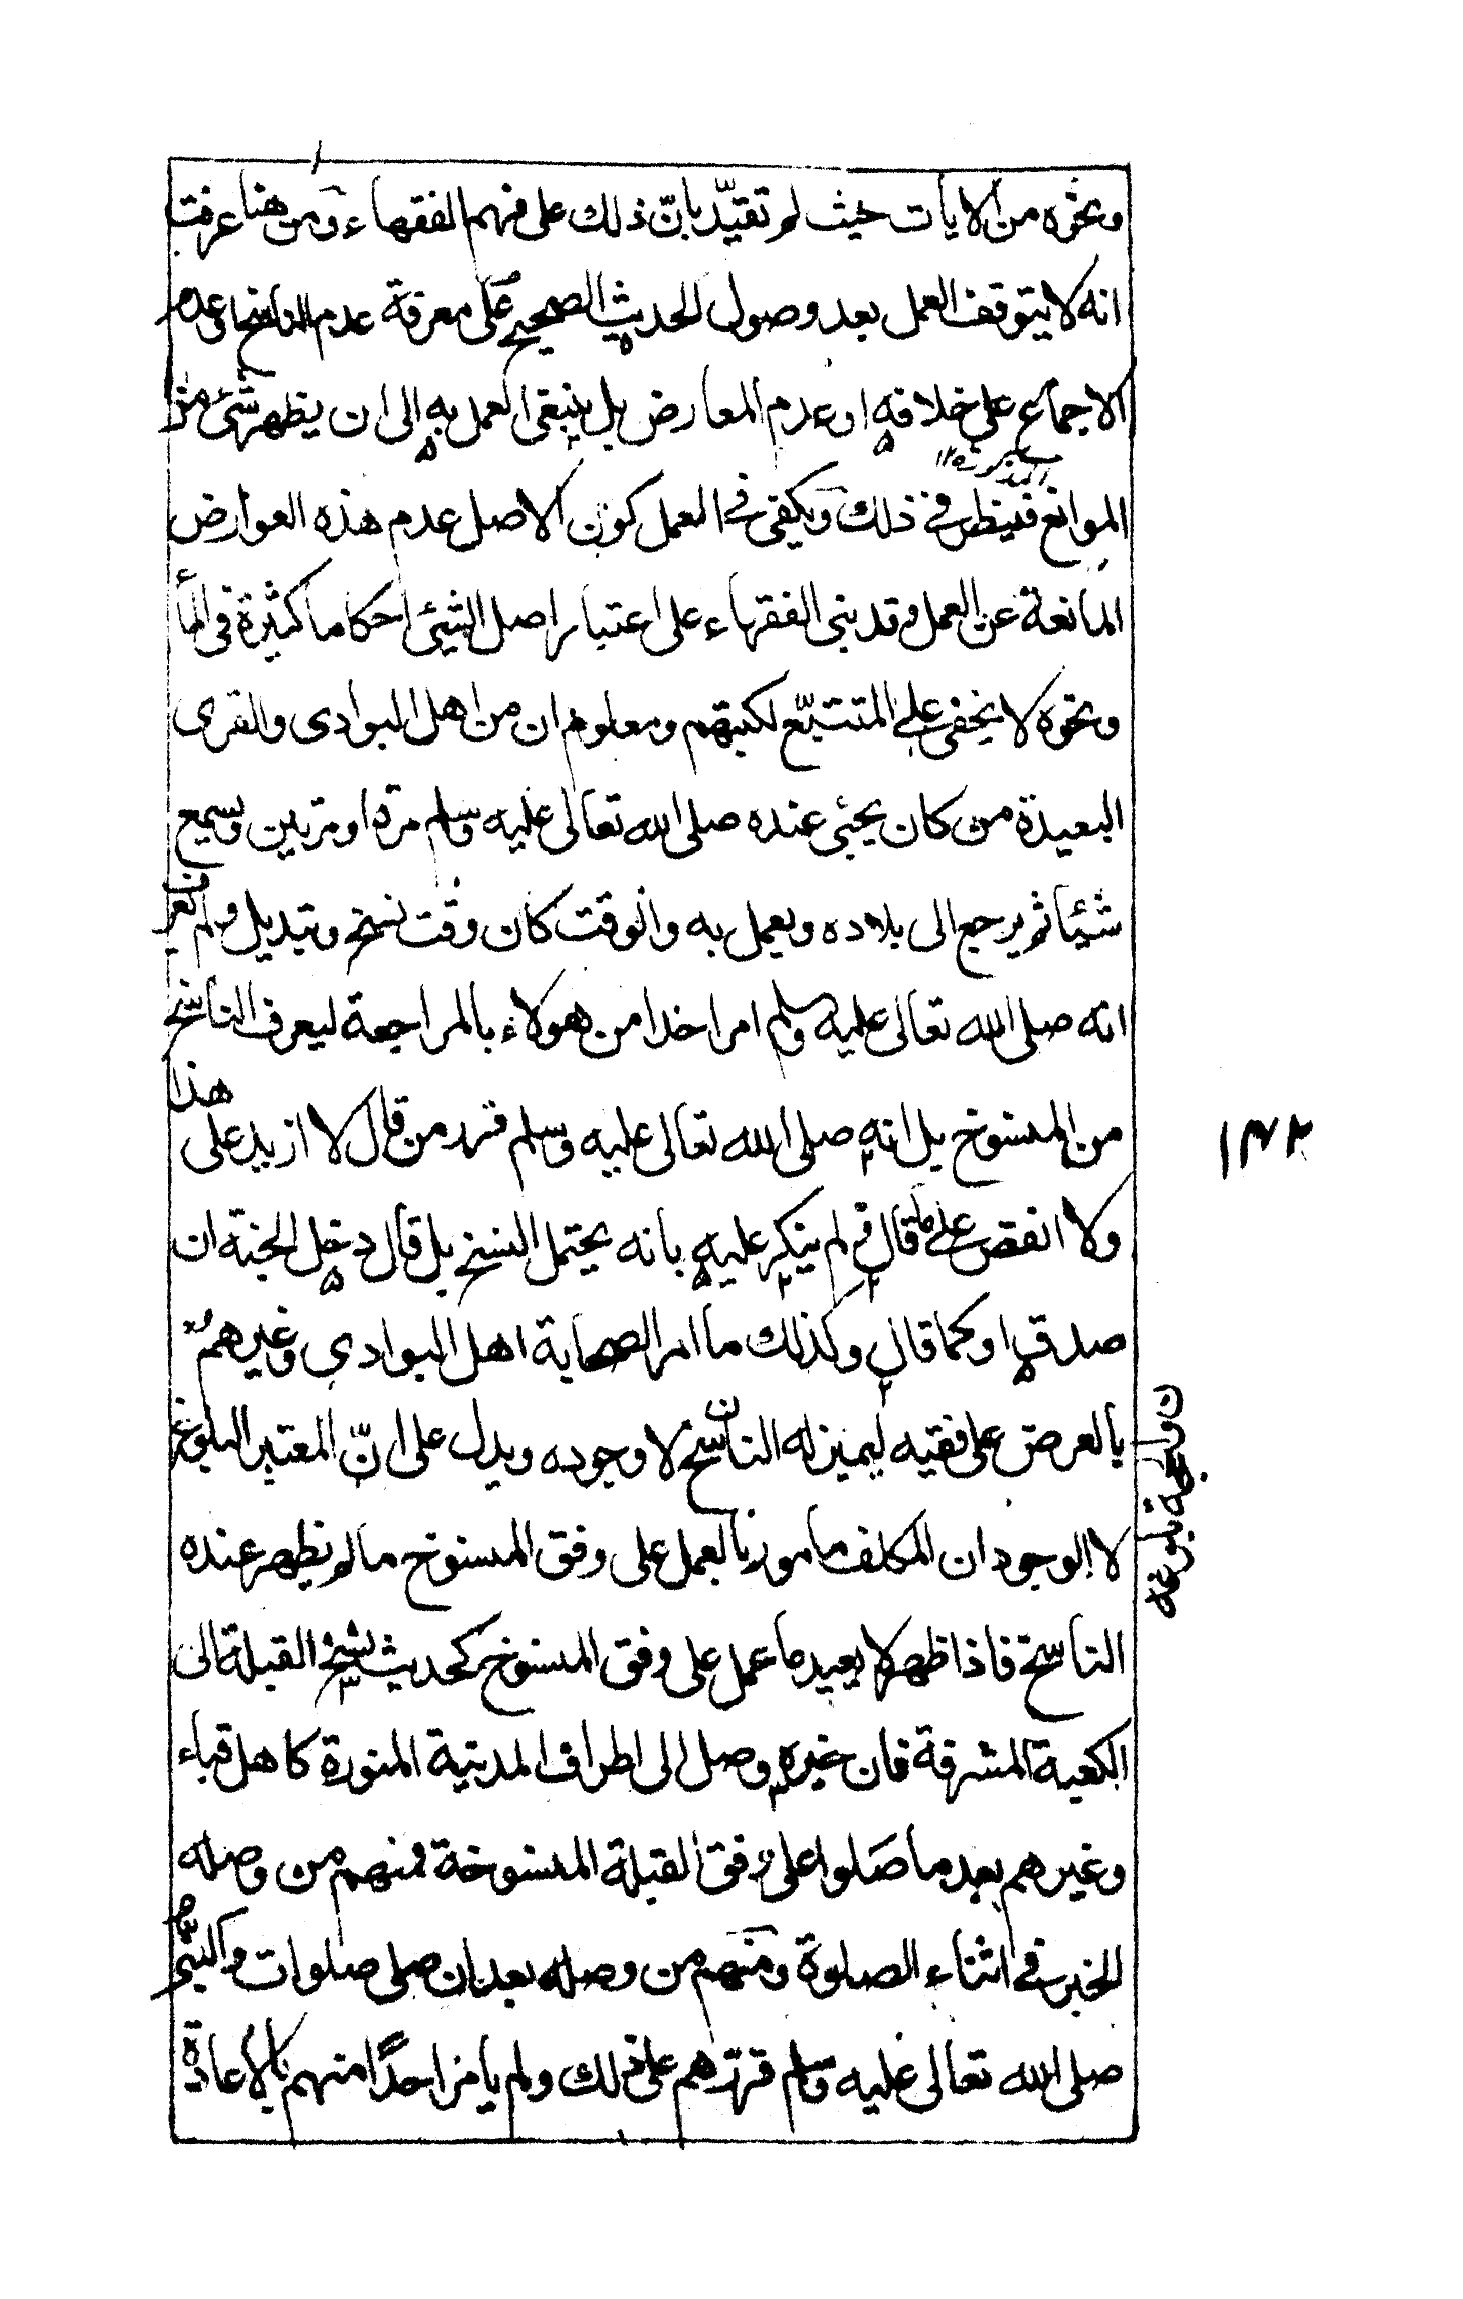 ونحوه من الايات حيث لم تقيّد بانّ ذلك على فهم الفقهاء ومن هنا عرفت
انه لا يتوقف العمل بعد وصول الحديث الصحيح على معرفة عدم الناسخ او عدم
الاجماع على خلافه او عدم المعارض بل ينبغى العمل به الى ان يظهر شئ من
الموانع فينظر فى ذلك ويكفى فى العمل كون الاصل عدم هذه العوارض
المانعة عن العمل وقد بنى الفقهاء على اعتبار اصل الشئ احكاما كثيرة فى الماء
ونحوه لا يخفى على المتتبّع لكتبهم ومعلوم ان من اهل البوادى والقرى
البعيدة من كان يجئ عنده صلى الله تعالى عليه وسلم مرة او مرتين ويسمع
شيئا ثم يرجع الى بلاده ويعمل به والوقت كان وقت نسخ وتبديل ولم نعرف
انه صلى الله تعالى عليه وسلم امر احدا من هولاء بالمراجعة ليعرف الناسخ
من المنسوخ بل انه صلى الله تعالى عليه وسلم قرر من قال لا ازيد على هذا
ولا انقص على ما قال ولم ينكر عليه بانه يحتمل النسخ بل قال دخل الجنة ان
صدق او كما قال وكذلك ما امر الصحابة اهل البوادى وغيرهم
بالعرض على فقيه ليميز له الناسخ لا وجوده ويدل على انّ المعتبر البلوغ
لا الوجود ان المكلف مامور بالعمل على وفق المنسوخ ما لم يظهر عنده
الناسخ فاذا ظهر لا يعيد ما عمل على وفق المنسوخ كحديث نسخ القبلة الى
الكعبة المشرفة فان خبره وصل الى اطراف المدينة المنورة كاهل قباء
وغيرهم بعد ما صَلوا على وفق القبلة المنسوخة فمنهم من وصله
الخبر فى اثناء الصلوة ومنهم من وصله بعد ان صلى صلوات والنبى
صلى الله تعالى عليه وسلم قررهم على ذلك ولم يامر احدًا منهم بالاعادة
١٣٢